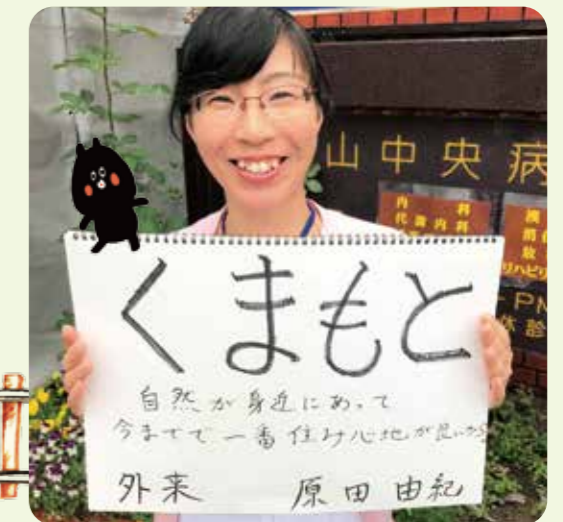 山中央病
内科
代謝内科
リハビリ
くまもと
自然が身近にあって
今までで一番住み心地が良いから
外来 原田由紀